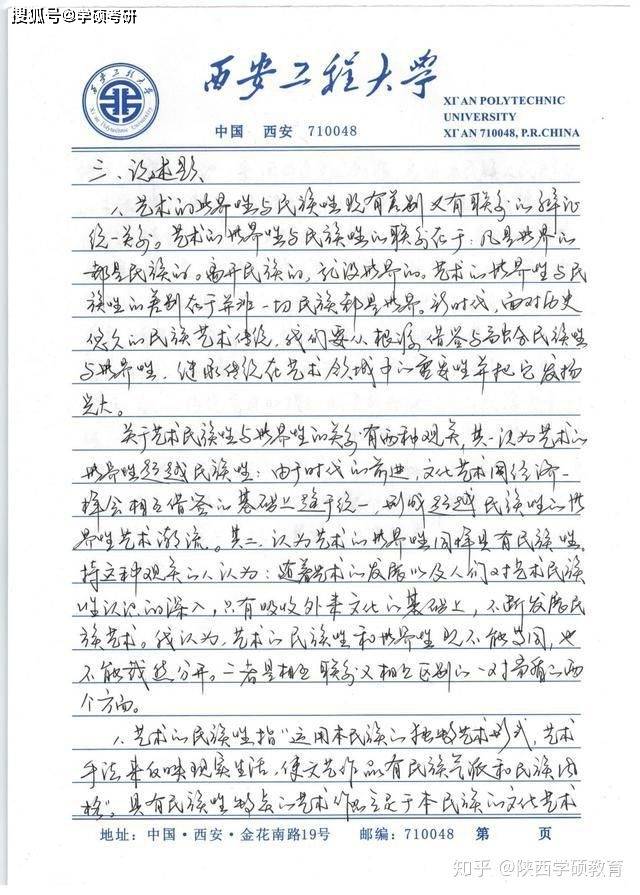 搜狐号@学硕考研
西安工程大学
西安工程大学
XI'AN Polytechnic University
XI'AN POLYTECHNIC
UNIVERSITY
中国 西安 710048
XI'AN 710048, P.R.CHINA
三、论述题、
1、艺术的世界性与民族性既有差别又有联系的辩证
统一关系。艺术的世界性与民族性的联系在于:凡是世界的
都是民族的。离开民族的,就没世界的。艺术的世界性与民
族性的差别在于并非一切民族都是世界。新时代,面对历史
悠久的民族艺术传统,我们要从根源借鉴与区分民族性
与世界性,继承传统在艺术领域中的重要性并把它发扬
光大。
关于艺术民族性与世界性的关系有两种观点,其一认为艺术的
世界性超越民族性:由于时代的前进,文化艺术同经济一
样会相互借鉴的基础上趋于统一,形成超越民族性的世
界性艺术潮流。其二、认为艺术的世界性同样具有民族性。
持这种观点的人认为:随着艺术的发展以及人们对艺术民族
性认识的深入,只有吸收外来文化的基础上,不断发展民
族艺术。我认为,艺术的民族性和世界性既不能等同,也
不能截然分开。二者是相互联系又相互区别的一对矛盾的两
个方面。
1、艺术的民族性指“运用本民族的独特艺术形式、艺术
手法来反映现实生活,使文艺作品有民族气派和民族风
格”。具有民族性特点的艺术作品立足于本民族的文化艺术
地址:中国·西安·金花南路19号 邮编:710048 第 页
知乎 @陕西学硕教育